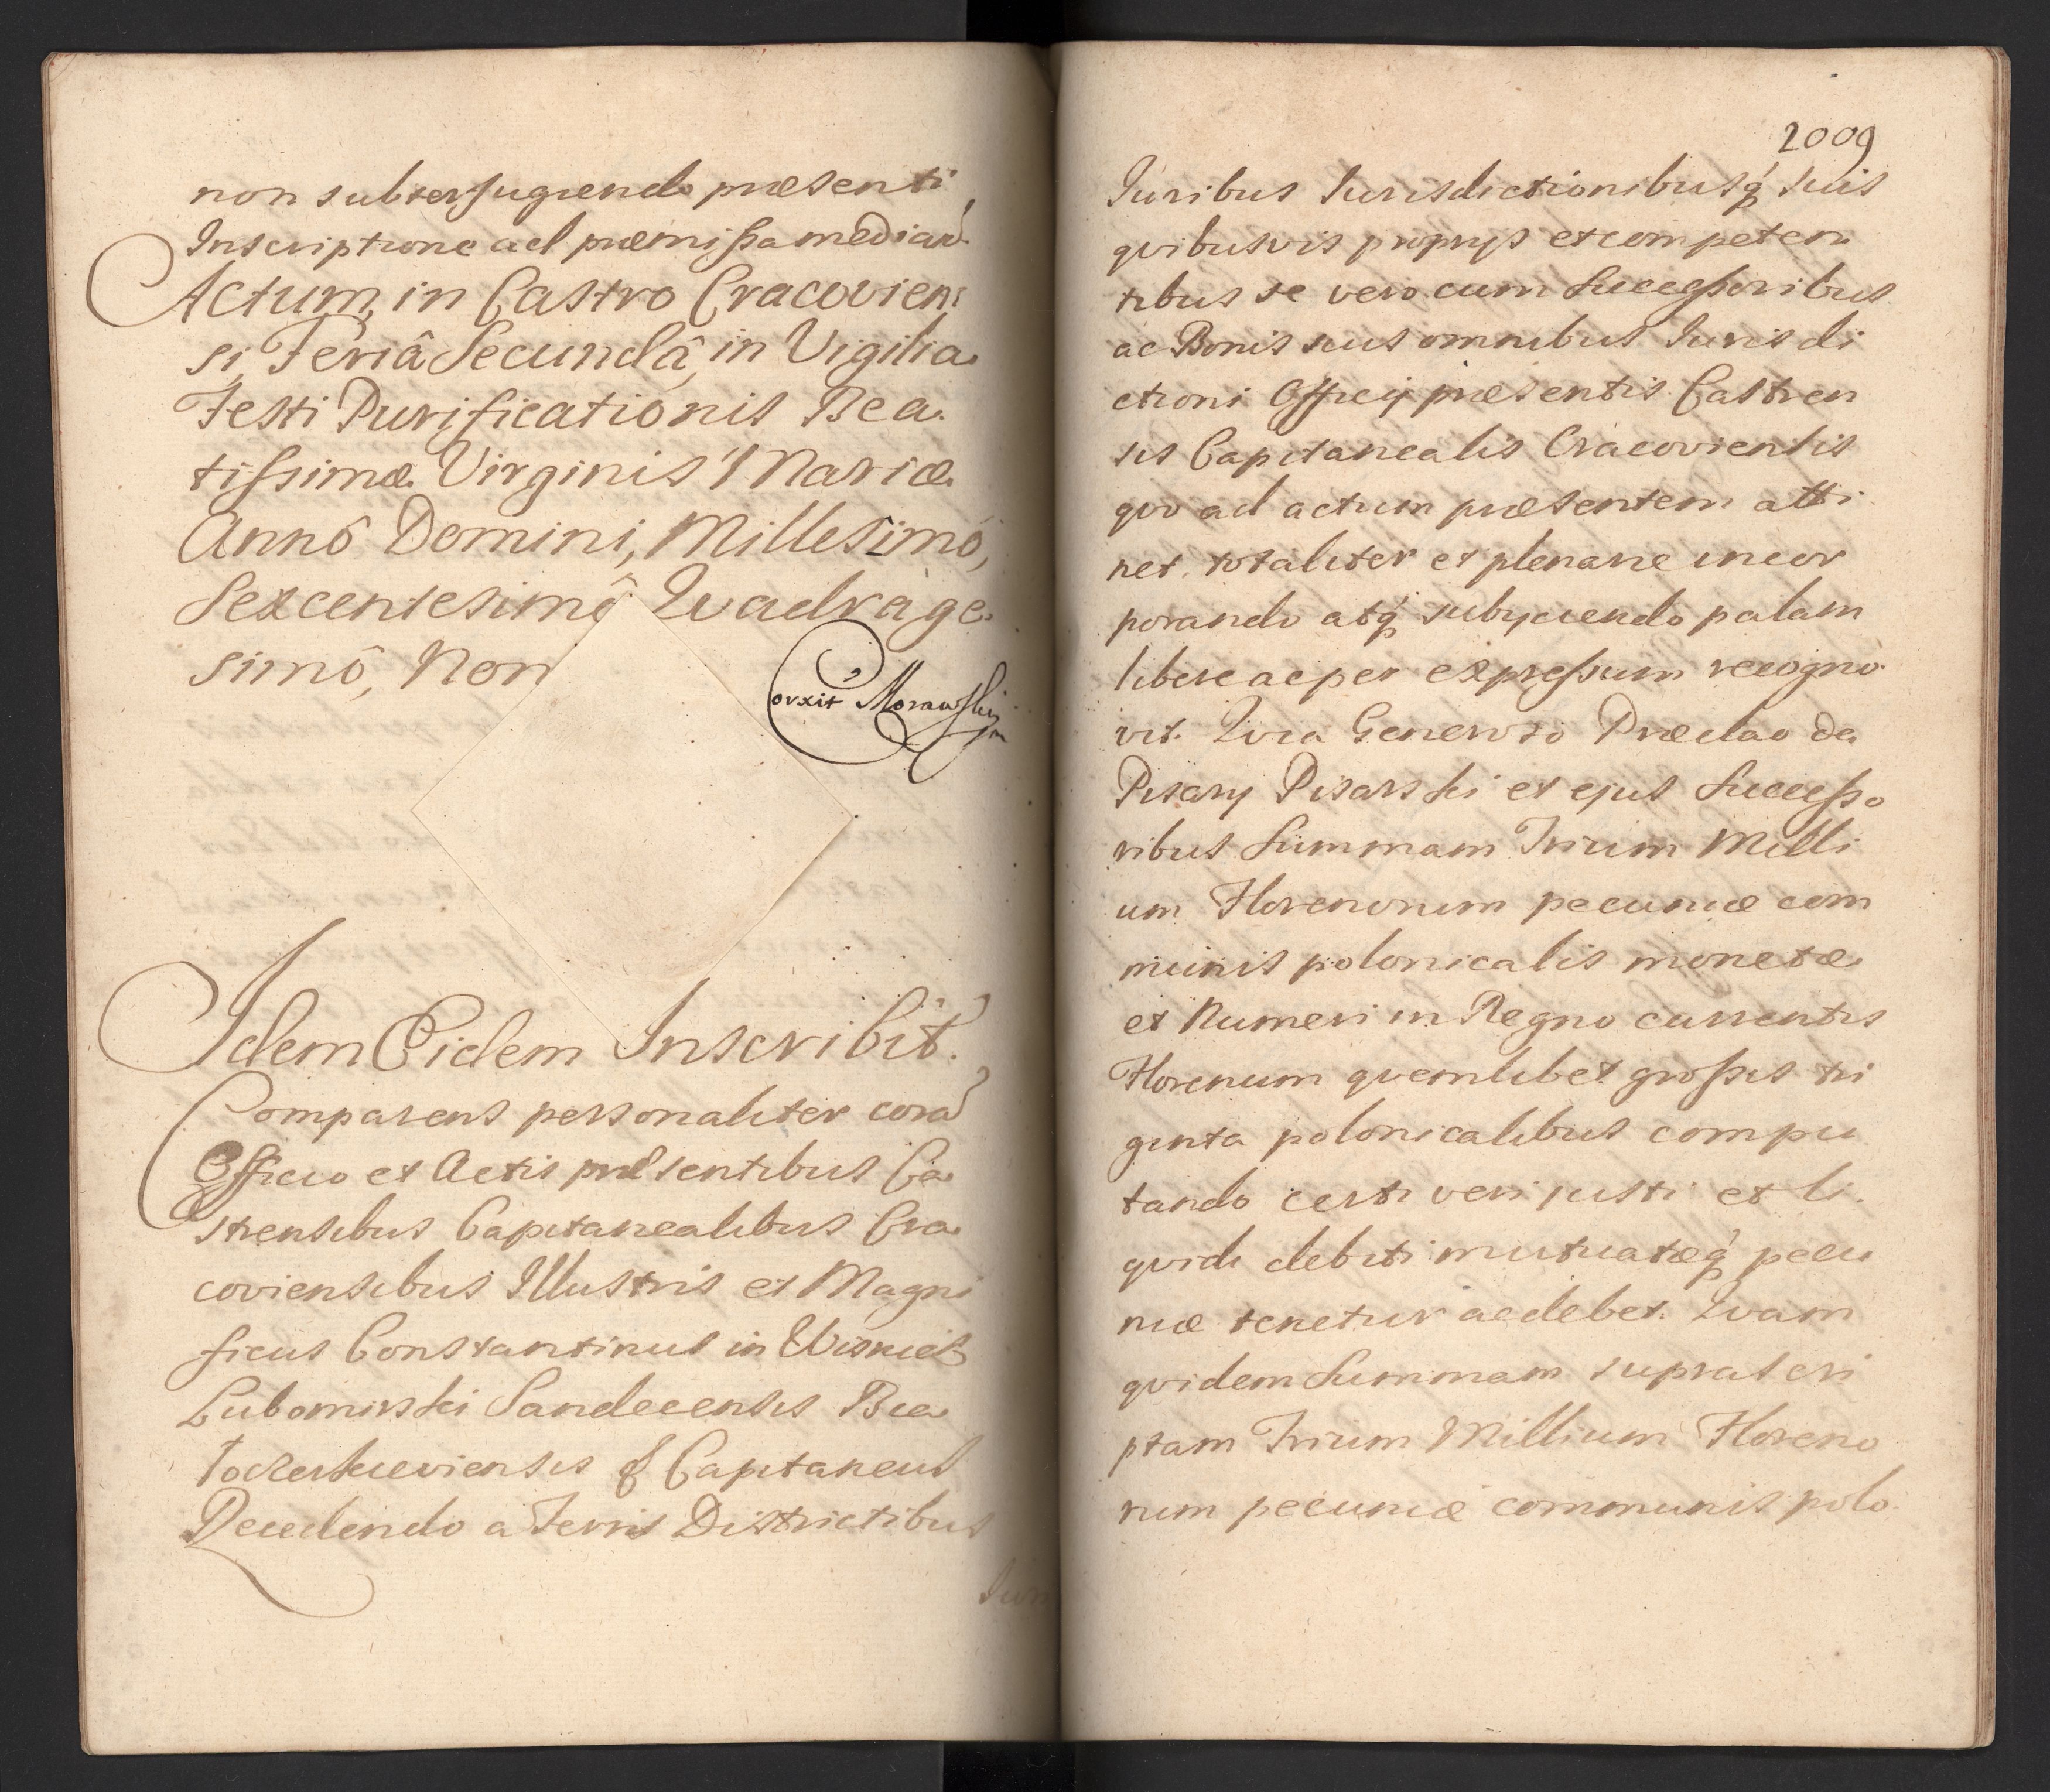 non subterfugiendo præsenti
Inscriptione ad præmissa median̄.
Actum in Castro Cracovien
si, Feriâ Secundâ, in Vigilia
Festi Purificationis Bea
tissimæ Virginis Mariæ
Annô Domini, Millesimô,
Sexcentesimô Quadrage
simô, Non
Corxit Morawski
Idem Eidem Inscribit.
Comparens personaliter corā
Officio et Actis præsentibus Ca
strensibus Capitanealibus Cra
coviensibus Illustris et Magni
ficus Constantinus in Wisnicz
Lubomirski Sandecensis Bia
Capitaneus
Recedendo a Terris Districtibus
Juri
2009
Juribus Jurisdictionibusq́ suis
qvibusvis proprys et competen
tibus se vero cum Successoribus
ac Bonis suis omnibus Jurisdi
ctioni Officy præsentis Castren
sis Capitanealis Cracoviensis
qvo ad actum præsentem atti
net totaliter et plenarie incor
porando atq́ subyciendo palam
libere ac per expressum recogno
vit. Qvia Generoso Præclao de
Pisary Pisarski et ejus Successo
ribus Summam Trium Milli
um Florenorum pecuniæ com
munis polonicalis monetæ
et Numeri in Regno currentis
Florenum qvemlibet grossis tri
ginta polonicalibus compu
tando certi veri justi et li
qvidi debiti mutuatæq́ pecu
niæ tenetur ac debet. Qvam
qvidem Summam suprascri
ptam Trium Millium Floreno
rum pecuniæ communis polo